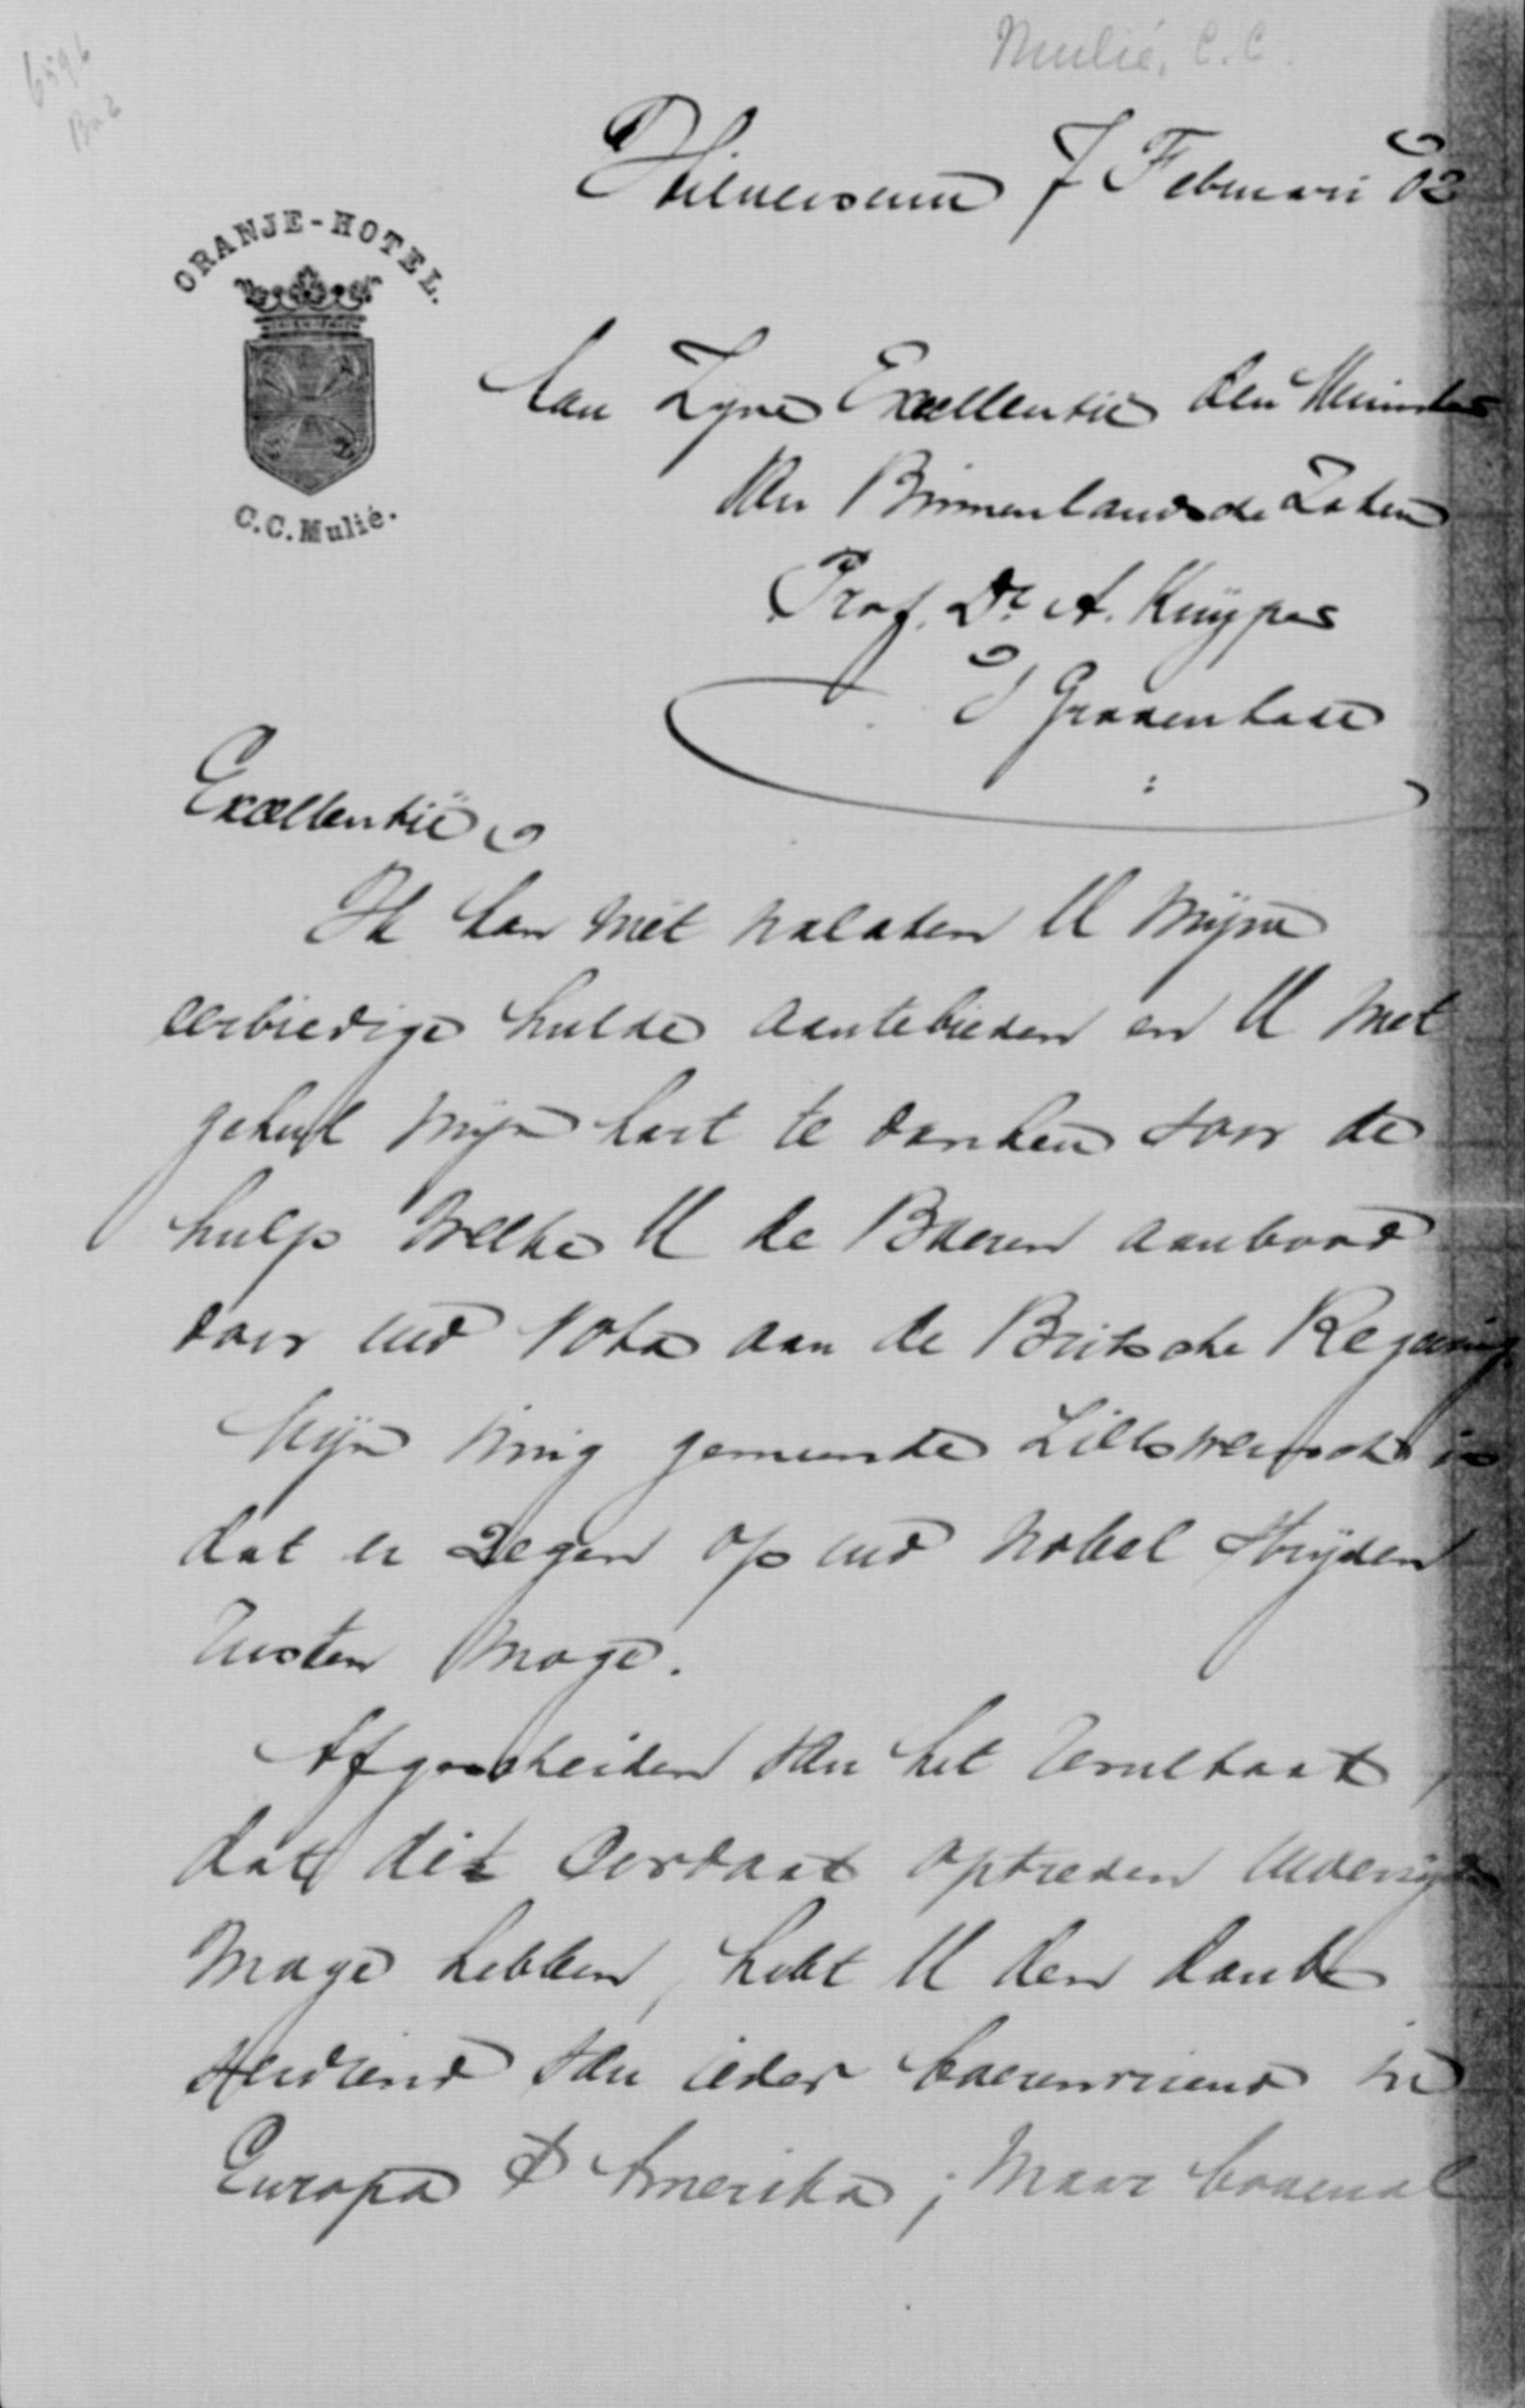 Mulié, C.C.
6596
Hilversum 7 Februari 02
ORANJE-HOTEL.
C.C. Mulié.
Aan Zyne Excellentie den Minister
van Binnenlandsche Zaken
Prof. Dr. A. Kuyper
's Gravenhage
Excellentie
Ik kan niet nalaten U mijne
eerbiedige hulde aantebieden en U met
geheel mijn hart te danken voor de
hulp welke U de Boeren aanbood
door uw Nota aan de Britsche Regeering
Mijn innig gemeende Zielswensch is
dat er zegen op uw nobel strijden
rusten moge.
Afgescheiden van het resultaat,
dat dit kordaat optreden
moge hebben, hebt U den dank
verdiend van ieder boerenvriend in
Europa & Amerika; maar bovenal